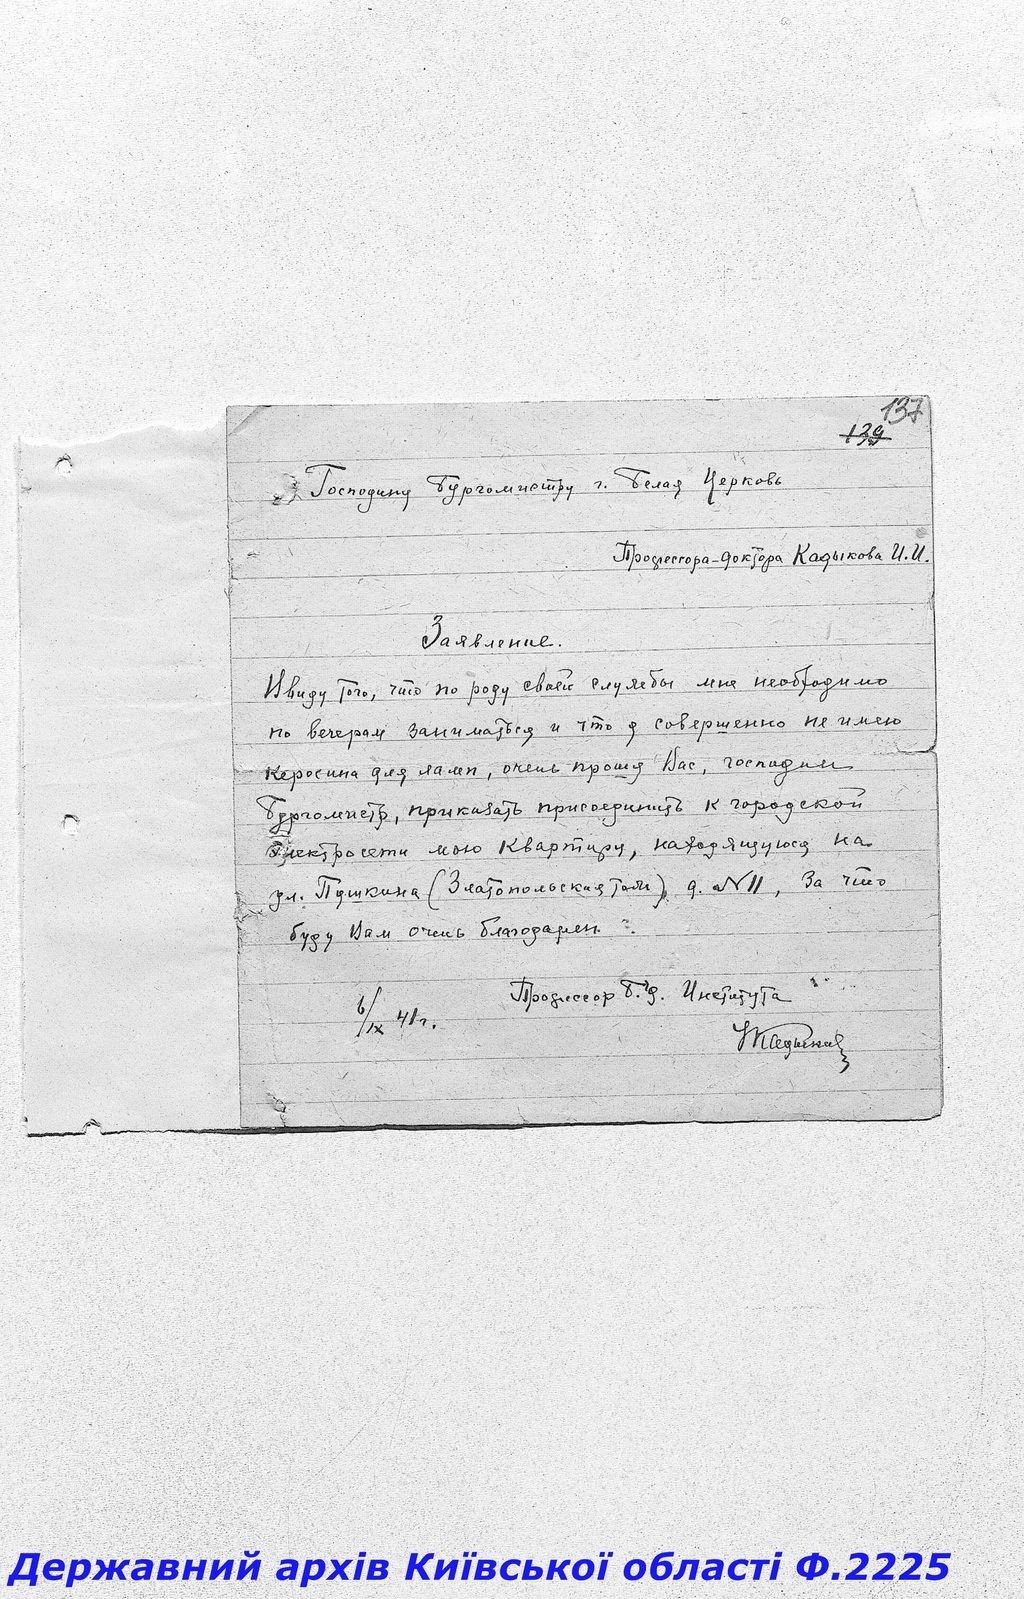 137
129
Господину Бургомистру г. Белая Церковь
Профессора-доктора Кадыкова И.И.
Заявление.
Ввиду того, что по роду своей службы мне необходимо
по вечерам заниматься и что я совершенно не имею
керосина для ламп, очень прошу Вас, господин
Бургомистр, приказать присоединить к городской
электросети мою квартиру, находящуюся на
ул. Пушкина (Златопольская тож), д. №11, за что
буду Вам очень благодарен.
Профессор Б. Института
6/IX 41 г.
Державний архів Київської області Ф.2225